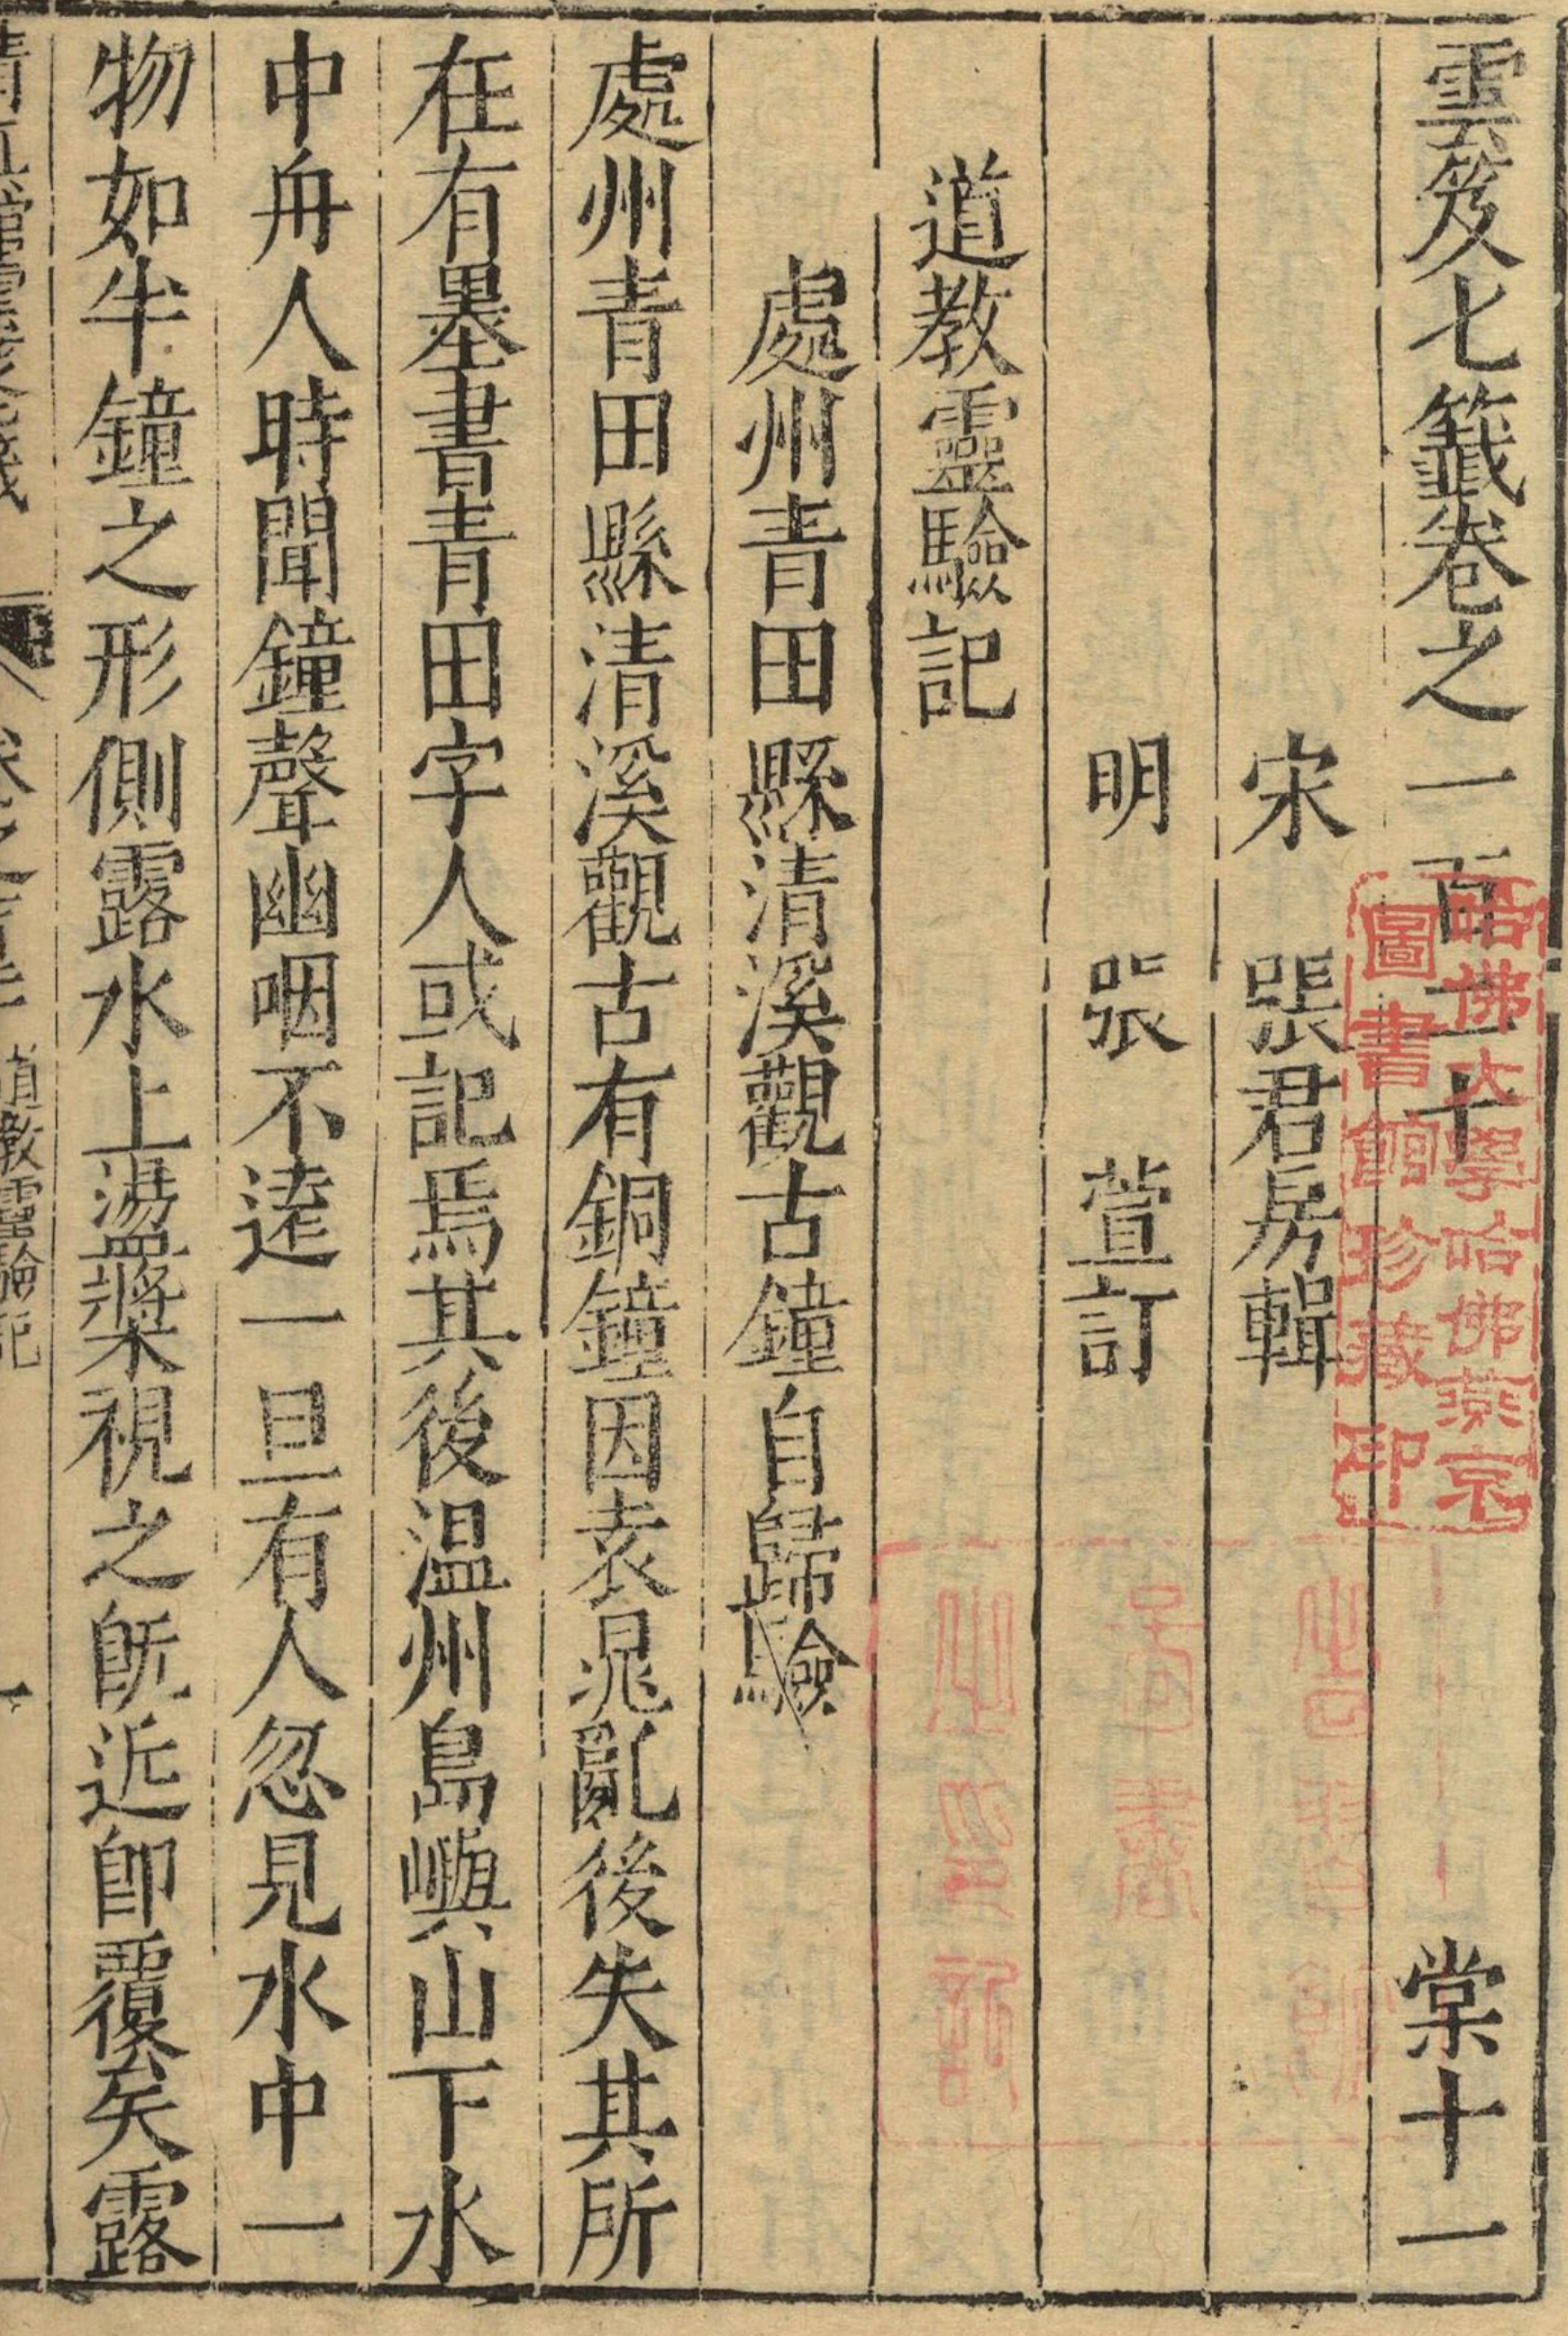 雲笈七籤卷之一百二十 棠十一
宋 張君房輯
明 張 萱訂
道教靈驗記
處州青田縣清溪觀古鐘自歸驗
處州青田縣清溪觀古有銅鐘因袁晁亂後失其所
在有墨書青田字人或記焉其後温州島嶼山下水
中舟人時聞鐘聲幽咽不遠一旦有人忽見水中一
物如半鐘之形側露水上盪槳視之旣近卽覆矣露
道教靈驗記
一
哈佛大學哈佛燕京
圖書館珍藏印